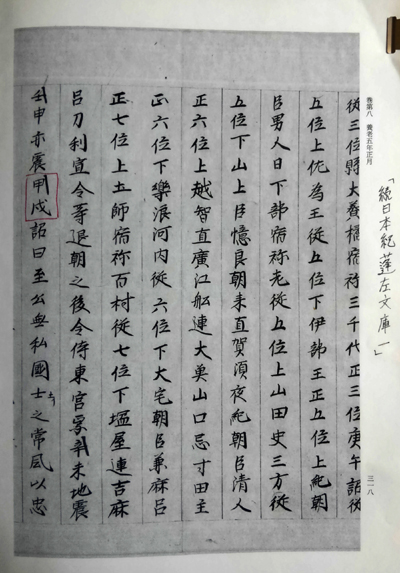 「続日本紀蓬左文庫一」
巻第八 養老五年正月
三一八
從三位縣犬養橘宿祢三千代正三位庚午詔從
五位上佐為王從五位下伊部王正五位上紀朝
臣男人日下部宿祢老從五位上山田史三方從
五位下山上臣憶良朝来直賀須夜紀朝臣清人
正六位上越智直廣江舩連大魚山口忌寸田主
正六位下樂浪河内從六位下大宅朝臣兼麻呂
正七位上土師宿祢百村從七位下塩屋連吉麻
呂刀利宣令等退朝之後令侍東宮焉辛未地震
壬申亦震甲戌詔曰至公無私國士之常風以忠